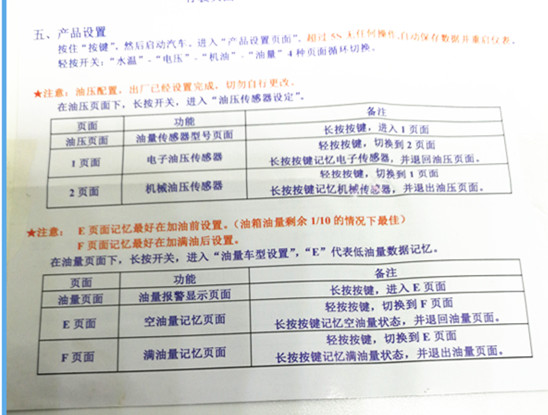 五、产品设置
按住“按键”，然后启动汽车。进入“产品设置页面”。超过 5S 无任何操作，自动保存数据并重启仪表。
轻按开关：“水温”-“电压”-“机油”-“油量”4 种页面循环切换。
★注意：油压配置，出厂已经设置完成，切勿自行更改。
在油压页面下，长按开关，进入“油压传感器设定”。
页面 功能 备注
油压页面 油量传感器型号页面 长按按键，进入 1 页面
1 页面 电子油压传感器 轻按按键，切换到 2 页面
长按按键记忆电子传感器，并退回油压页面。
2 页面 机械油压传感器 轻按按键，切换到 1 页面
长按按键记忆机械传感器，并退出油压页面。
★注意： E 页面记忆最好在加油前设置。（油箱油量剩余 1/10 的情况下最佳）
F 页面记忆最好在加满油后设置。
在油量页面下，长按开关，进入“油量车型设置”，“E”代表低油量数据记忆。
页面 功能 备注
油量页面 油量报警显示页面 长按按键，进入 E 页面
E 页面 空油量记忆页面 轻按按键，切换到 F 页面
长按按键记忆空油量状态，并退回油量页面。
F 页面 满油量记忆页面 轻按按键，切换到 E 页面
长按按键记忆满油量状态，并退出油量页面。